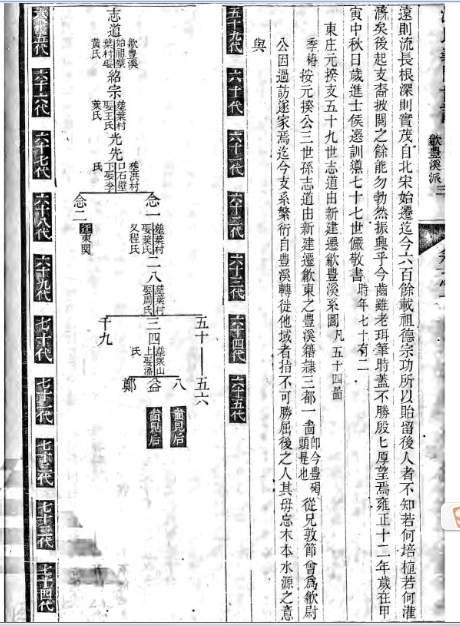 歙豐溪派 三
遠則流長根深則實茂自北宋始遷迄今六百餘載祖德宗功所以貽留後人者不知若何培植若何灌
漑矣後起支裔披閱之餘能勿勃然振興乎今裔雖老耳筆時蓋不勝殷匕厚望焉雍正十二年歲在甲
寅中秋日歲進士候選訓導七十七世儼敬書時年七十有二
東庄元揆支五十九世志道由新建遷歙豐溪系圖 凡五十四圖
季梅按元揆公三世孫志道由新建遷歙東之豐溪籍隸三都一啚 卽今豐堨頭是也 從兄敦節曾爲歙尉
公因過訪遂家焉迄今支系繁衍自豐溪轉徙他域者指不可勝屈後之人其毋忘木本水源之意
與
五十九代
六十代
六十一代
六十二代
六十三代
六十四代
六十五代
志道 歙豐溪始祖娶葉村張黃氏
紹宗 葉村娶王氏葉氏
光先 口石壁下娶李氏
念一 葉村娶葉氏又程氏
念二 遷東関
二八 葉村娶周氏
五十
三四 上娶潘
千九
五六
八 啚見后
益 啚見后
鄭
六十五代
六十六代
六十七代
六十八代
六十九代
七十代
七十一代
七十二代
七十三代
七十四代